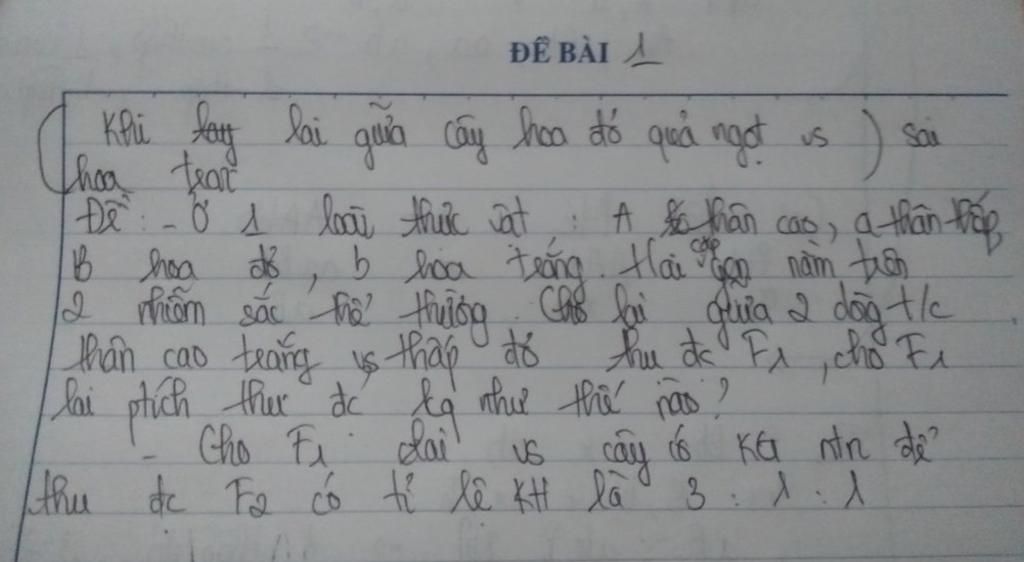 ĐỀ BÀI 1
( Khi lai giữa cây hoa đỏ quả ngọt vs ) sai
hoa trắn
Đề: - Ở 1 loài thực vật : A thân cao, a thân thấp,
B hoa đỏ, b hoa trắng. Hai cặp gen nằm trên
2 nhiễm sắc thể thường. Cho lai giữa 2 dòng t/c
thân cao trắng vs thấp đỏ thu đc F1, cho F1
lai ptích thu đc kq như thế nào?
- Cho F1 lai vs cây có KG ntn để
thu đc F2 có tỉ lệ KH là 3 : 1 : 1